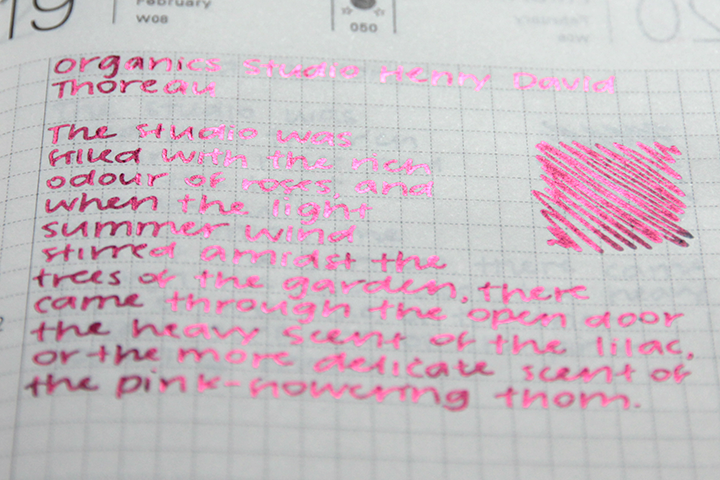 19
February
W08
050
February
W08
20
Organics Studio Henry David
Thoreau
The studio was
filled with the rich
odour of roses, and
when the light
summer wind
stirred amidst the
trees of the garden, there
came through the open door
the heavy scent of the lilac,
or the more delicate scent of
the pink-flowering thorn.
2